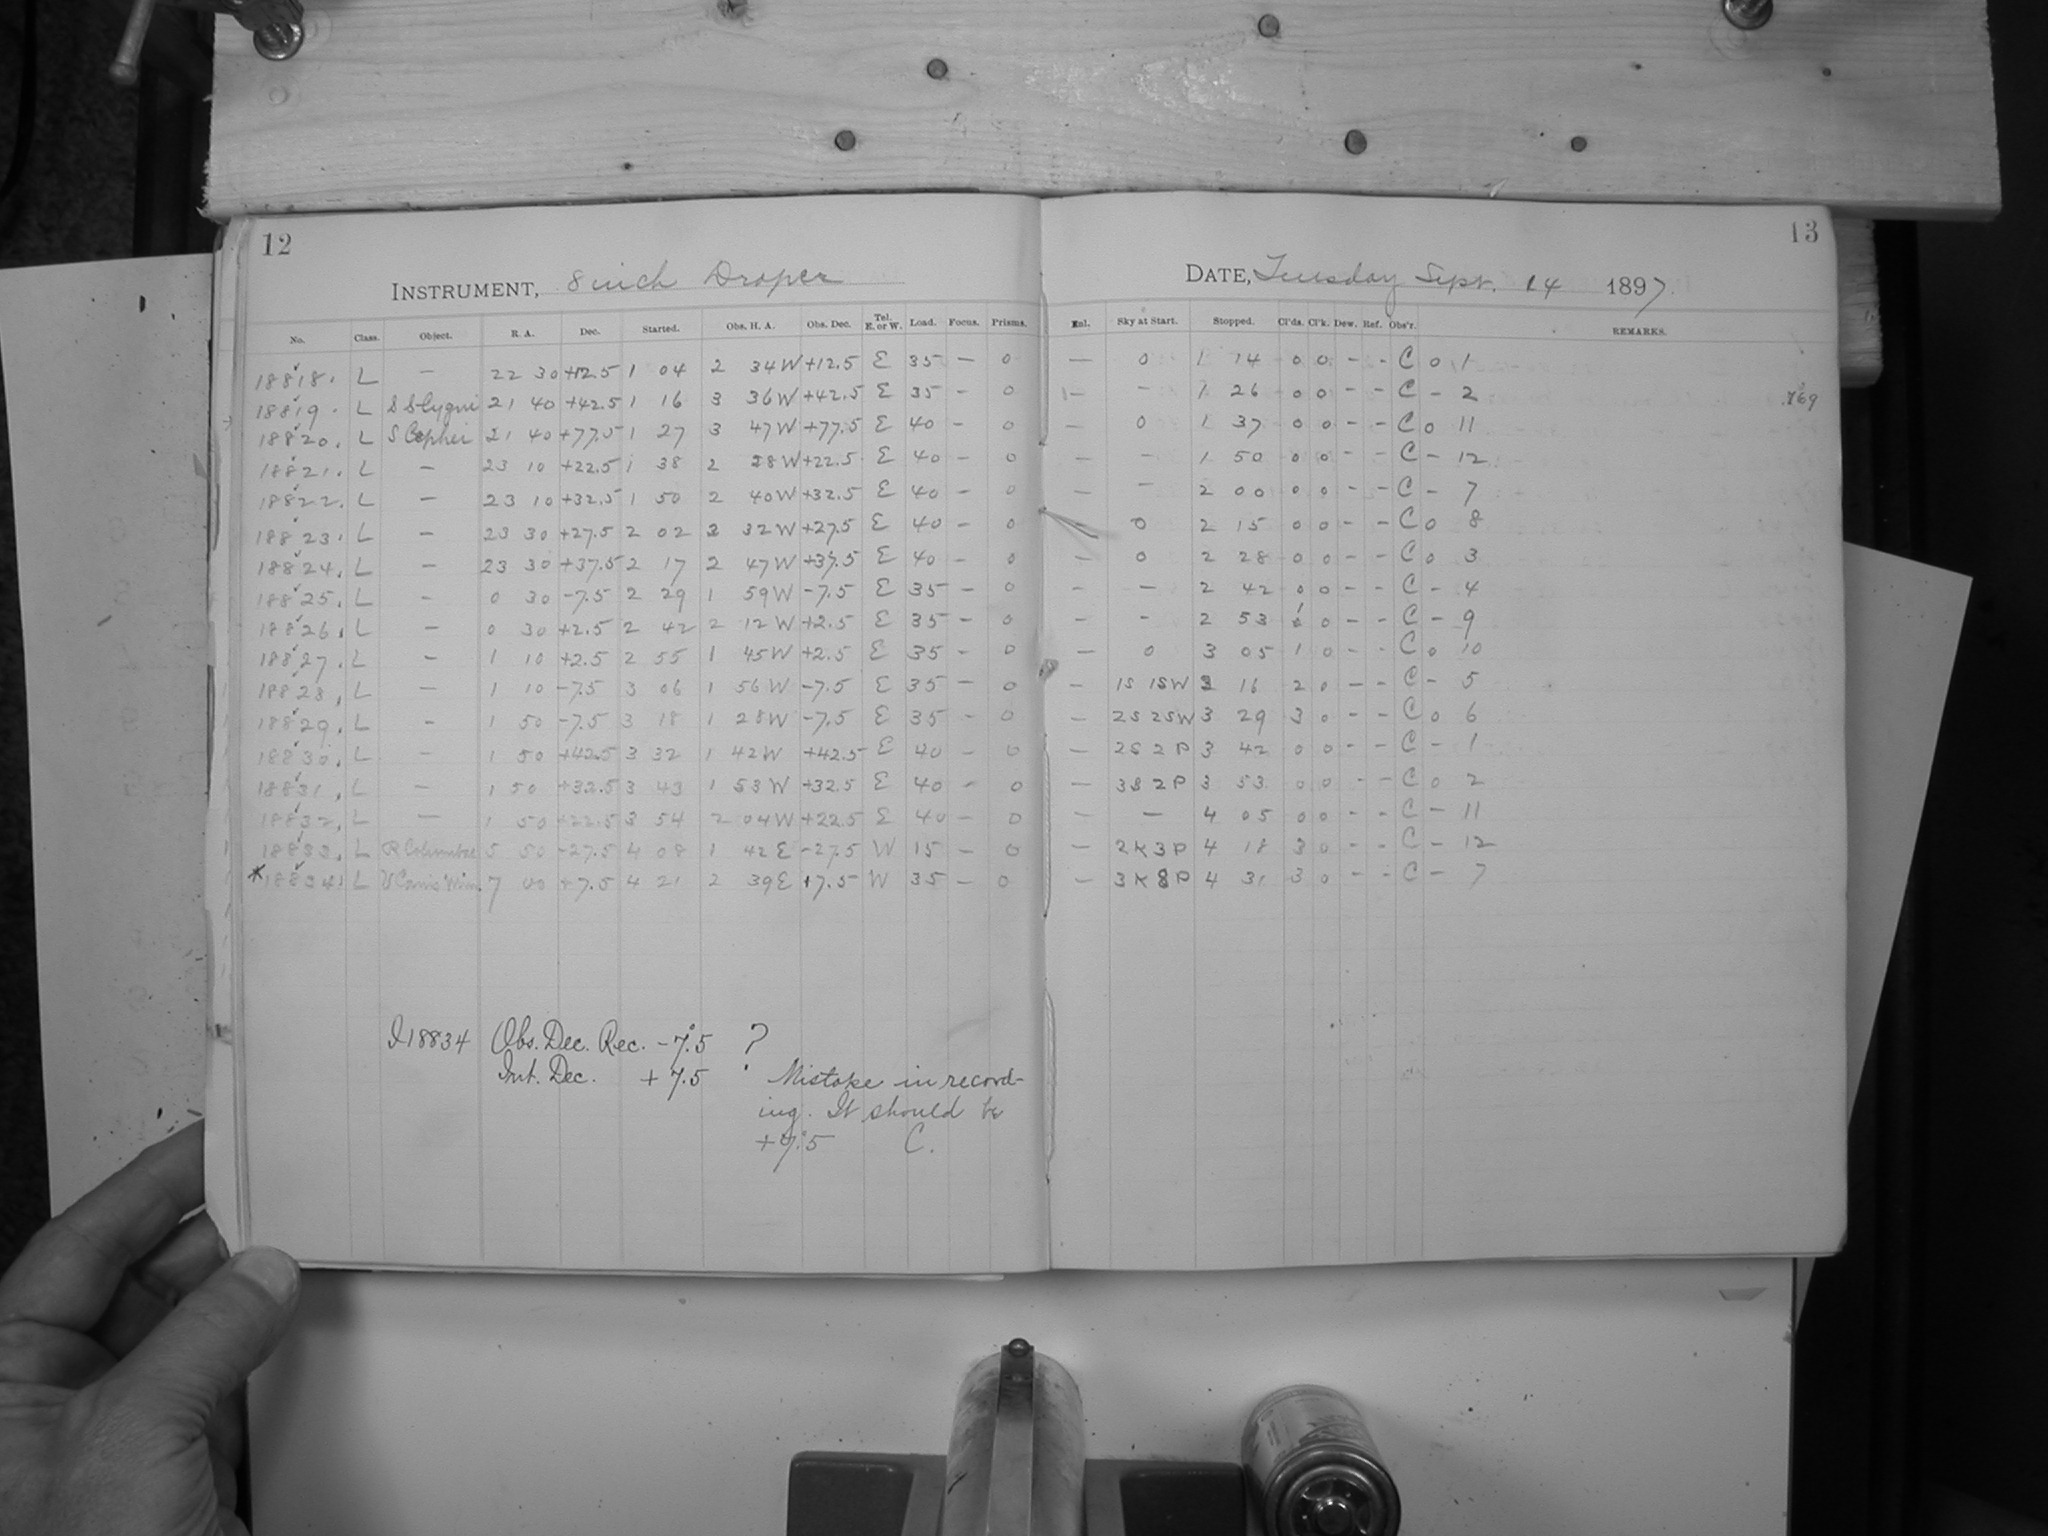 12
13
INSTRUMENT, 8 inch Draper
DATE, Tuesday Sept. 14 1897.
No. Class. Object. R. A. Dec. Started. Obs. H. A. Obs. Dec. Tel. E. or W. Load. Focus. Prisms. Enl. Sky at Start. Stopped. Cl'ds. Cl'k. Dew. Ref. Obs'r. REMARKS.
18818. L — 22 30 +12.5 1 04 2 34 W +12.5 E 35 — 0 — 0 1 14 0 0 - - C 0 1
18819. L S S Cygni 21 40 +42.5 1 16 3 36 W +42.5 E 35 — 0 — - 1 26 0 0 - - C - 2 .769
18820. L S Cephei 21 40 +77.5 1 27 3 47 W +77.5 E 40 - 0 — 0 1 37 0 0 - - C 0 11
18821. L — 23 10 +22.5 1 38 2 28 W +22.5 E 40 — 0 — - 1 50 0 0 - - C - 12
18822. L — 23 10 +32.5 1 50 2 40 W +32.5 E 40 — 0 — - 2 00 0 0 - - C - 7
18823. L — 23 30 +27.5 2 02 2 32 W +27.5 E 40 — 0 — 0 2 15 0 0 - - C 0 8
18824. L — 23 30 +37.5 2 17 2 47 W +37.5 E 40 - 0 — 0 2 28 0 0 - - C 0 3
18825. L - 0 30 -7.5 2 29 1 59 W -7.5 E 35 — 0 - — 2 42 0 0 - - C - 4
18826. L — 0 30 +2.5 2 42 2 12 W +2.5 E 35 — 0 — - 2 53 1 0 - - C - 9
18827. L - 1 10 +2.5 2 55 1 45 W +2.5 E 35 - 0 — 0 3 05 1 0 - - C 0 10
18828. L — 1 10 -7.5 3 06 1 56 W -7.5 E 35 — 0 - 1S 1SW 3 16 2 0 - - C - 5
18829. L - 1 50 -7.5 3 18 1 28 W -7.5 E 35 - 0 - 2S 2SW 3 29 3 0 - - C 0 6
18830. L - 1 50 +42.5 3 32 1 42 W +42.5 E 40 - 0 — 2S 2P 3 42 0 0 - - C - 1
18831. L — 1 50 +32.5 3 43 1 53 W +32.5 E 40 - 0 — 3S 2P 3 53 0 0 - - C 0 2
18832. L — 1 50 +22.5 3 54 2 04 W +22.5 E 40 — 0 - — 4 05 0 0 - - C - 11
18833. L R Columbae 5 50 -27.5 4 08 1 42 E -27.5 W 15 - 0 - 2K3P 4 18 3 0 - - C - 12
*18834. L V Canis Min. 7 00 +7.5 4 21 2 39 E +7.5 W 35 — 0 — 3K8P 4 31 3 0 - - C - 7
I18834 Obs. Dec. Rec. -7°.5 ?
Int. Dec. +7.5
Mistake in record-
ing. It should be
+7°.5 C.